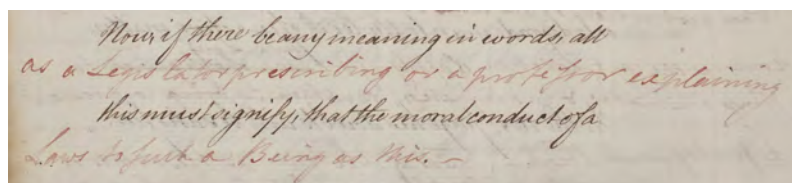 Now, if there be any meaning in words, all
as a Legislator prescribing or a professor explaining
this must signify, that the moral conduct of a
Laws to such a Being as this. —